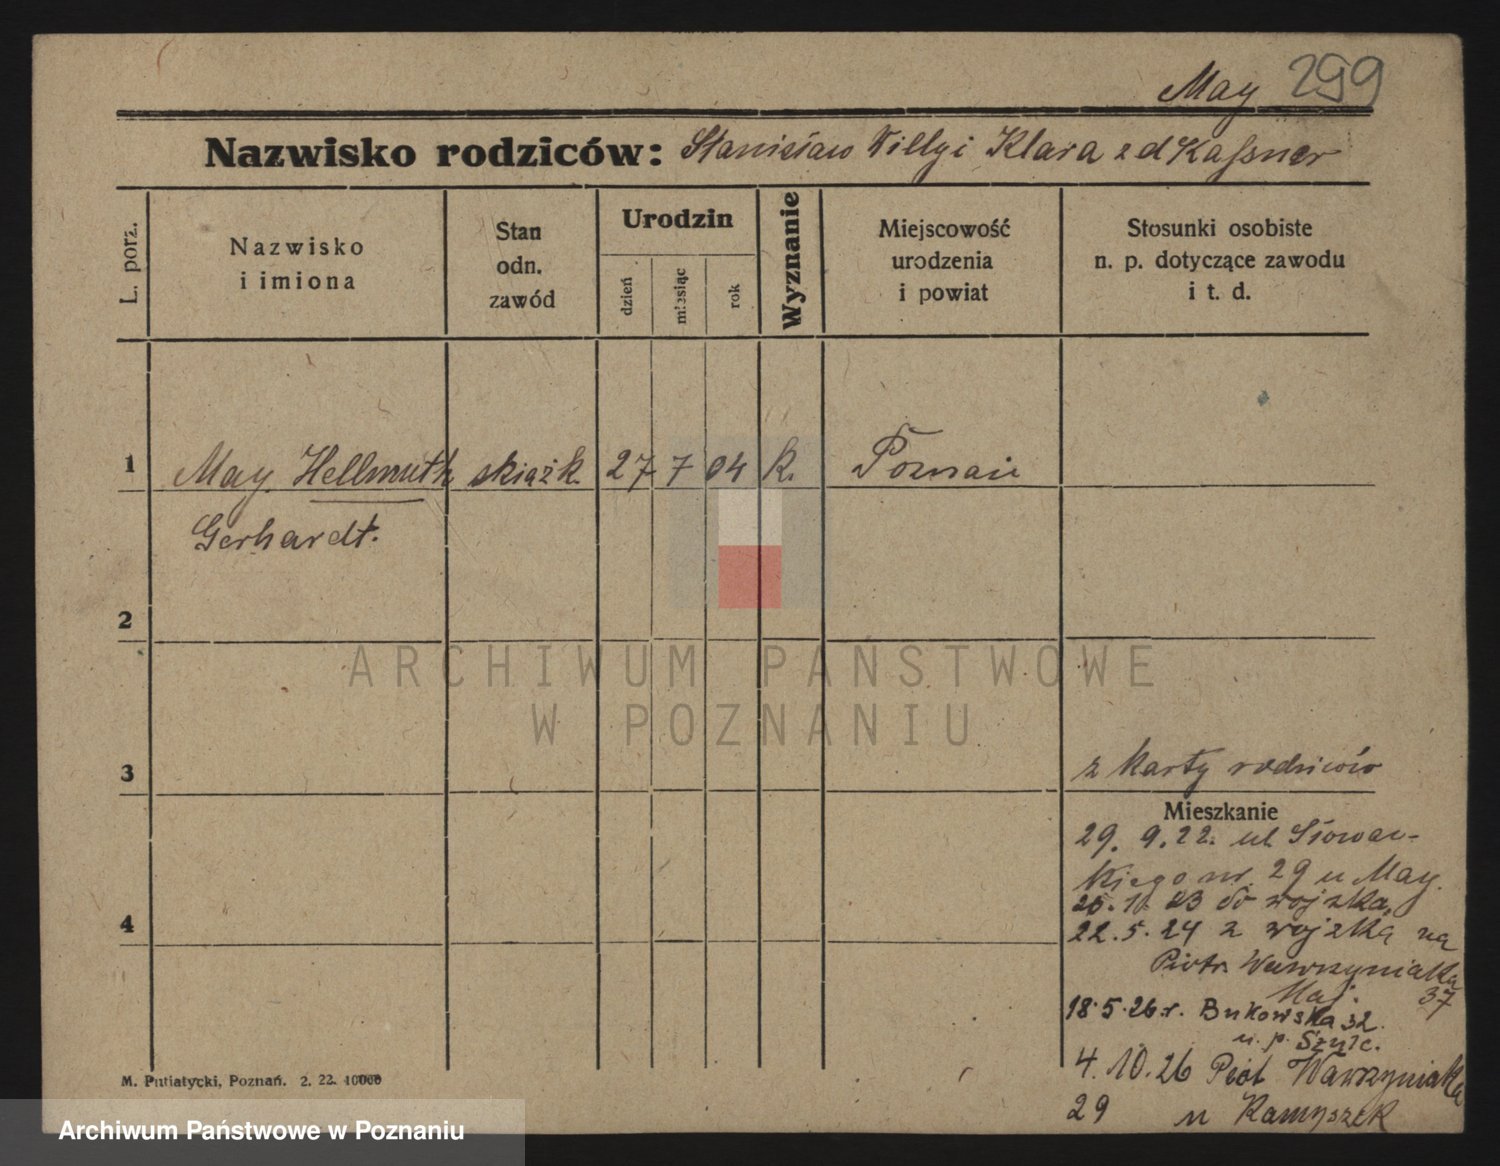 May 299
Nazwisko rodziców: Stanisław Villy i Klara z d Kaßner
L. porz.
Nazwisko
i imiona
Stan
odn.
zawód
Urodzin
dzień
miesiąc
rok
Wyznanie
Miejscowość
urodzenia
i powiat
Stosunki osobiste
n. p. dotyczące zawodu
i t. d.
1 May Hellmuth 27 7 04 k. Poznań
Gerhardt.
2
ARCHIWUM PAŃSTWOWE
W POZNANIU
3 z karty rodziców
Mieszkanie
29. 9. 22. ul Słowac-
kiego nr. 29 u May.
23 do wojska,
4 22. 5. 24 z wojska na
Piotr. Wawrzyniaka
37
18.5.26 r. Bukowska 32.
u. p. Szulc.
4. 10. 26 Piot Wawrzyniaka
29 u Kamyszek
M. Putiatycki, Poznań. 2. 22. 10000
Archiwum Państwowe w Poznaniu